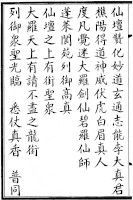 仙壇贊化妙道玄通志能李大真君
樵陽得道神威伏虎白眉真人
度凡覺迷大羅劍仙碧蘿仙師
蓬萊閬苑列御高真
仙壇之上有請不盡之龍術
大羅天上有請不盡之龍術
列御泉聖光臨　悉仗真香　普同